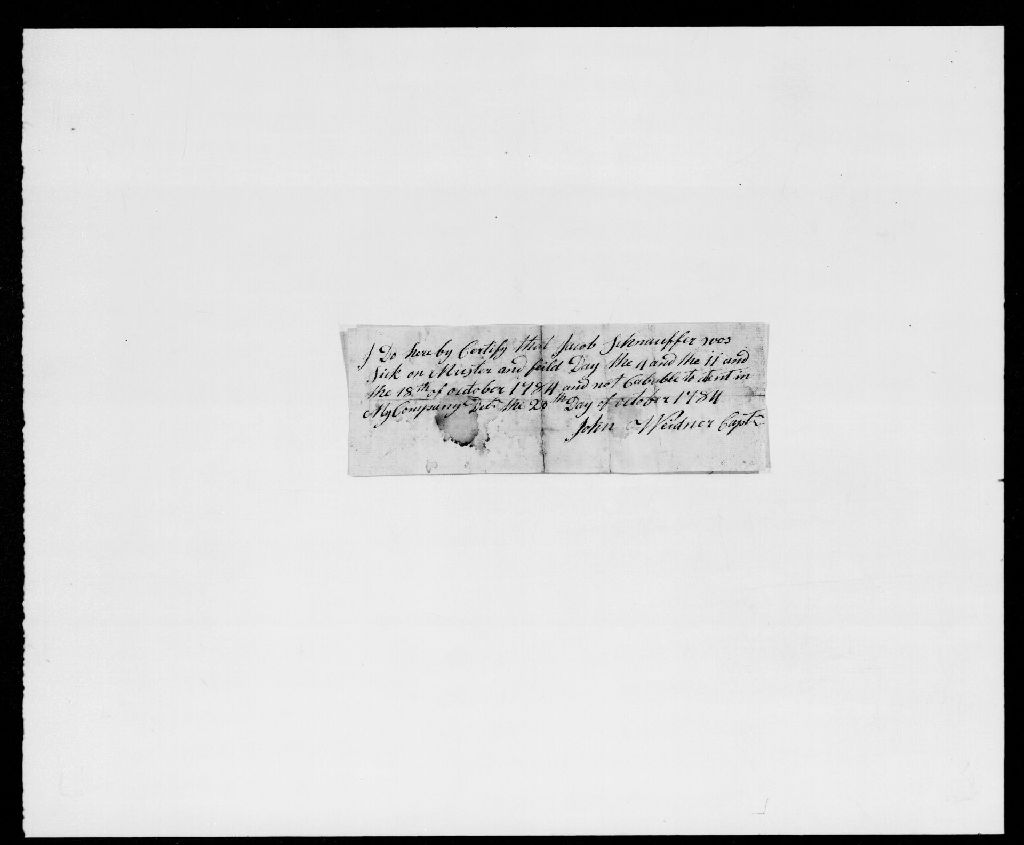 I Do hereby Certify that Jacob Schnauffer wos
Sick on Muster and feild Day the 4 and the 11 and
the 18th of october 1784 and not Cabuble to atent in
My Company Det the 20th Day of october 1784
John Weidner Capt